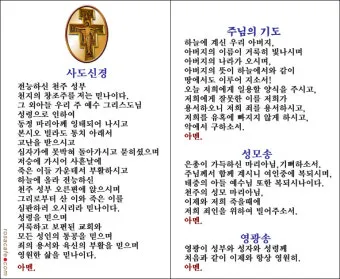 사도신경
전능하신 천주 성부
천지의 창조주를 저는 믿나이다.
그 외아들 우리 주 예수 그리스도님
성령으로 인하여
동정 마리아께 잉태되어 나시고
본시오 빌라도 통치 아래서
고난을 받으시고
십자가에 못박혀 돌아가시고 묻히셨으며
저승에 가시어 사흗날에
죽은 이들 가운데서 부활하시고
하늘에 올라 전능하신
천주 성부 오른편에 앉으시며
그리로부터 산 이와 죽은 이를
심판하러 오시리라 믿나이다.
성령을 믿으며
거룩하고 보편된 교회와
모든 성인의 통공을 믿으며
죄의 용서와 육신의 부활을 믿으며
영원한 삶을 믿나이다.
아멘.
주님의 기도
하늘에 계신 우리 아버지,
아버지의 이름이 거룩히 빛나시며
아버지의 나라가 오시며,
아버지의 뜻이 하늘에서와 같이
땅에서도 이루어 지소서!
오늘 저희에게 일용할 양식을 주시고,
저희에게 잘못한 이를 저희가
용서하오니 저희 죄를 용서하시고,
저희를 유혹에 빠지지 않게 하시고,
악에서 구하소서.
아멘.
성모송
은총이 가득하신 마리아님, 기뻐하소서.
주님께서 함께 계시니 여인중에 복되시며,
태중의 아들 예수님 또한 복되시나이다.
천주의 성모 마리아님,
이제와 저희 죽을때에
저희 죄인을 위하여 빌어주소서.
아멘.
영광송
영광이 성부와 성자와 성령께
처음과 같이 이제와 항상 영원히
아멘.